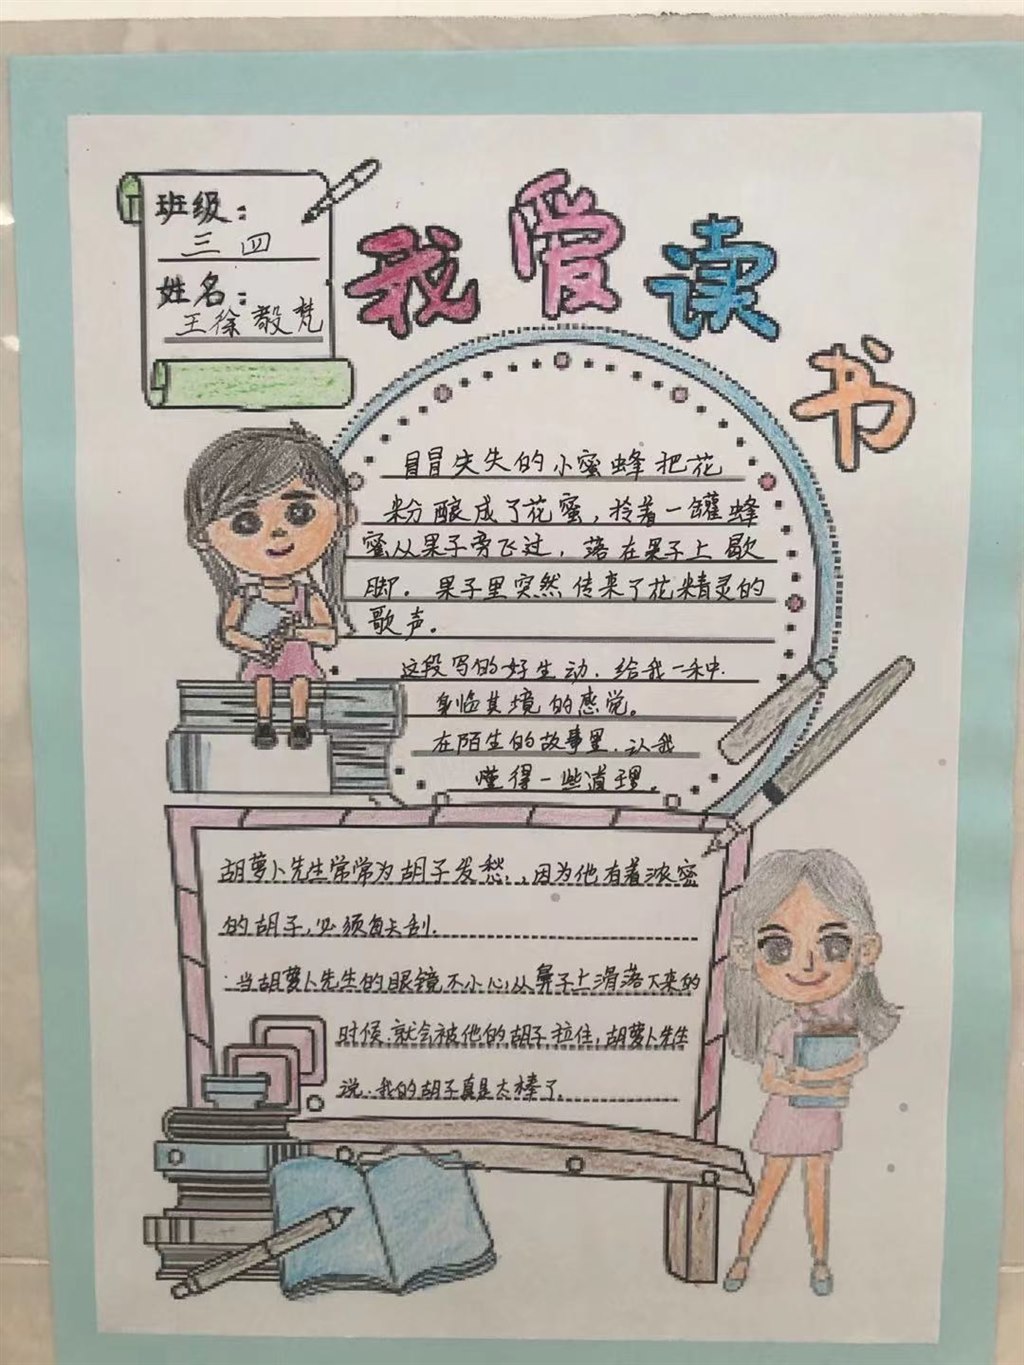 班级：
三四
姓名：
王徐毅梵
我爱读书
冒冒失失的小蜜蜂把花
粉酿成了花蜜，拎着一罐蜂
蜜从果子旁飞过，落在果子上歇
脚。果子里突然传来了花精灵的
歌声。
这段写的好生动．给我一种．
身临其境的感觉。
在陌生的故事里．让我
懂得一些道理。
胡萝卜先生常常为胡子发愁，，因为他有着浓密
的胡子，必须每天刮．
当胡萝卜先生的眼镜不小心从鼻子上滑落下来的
时候．就会被他的胡子拉住，胡萝卜先生
说：我的胡子真是太棒了．